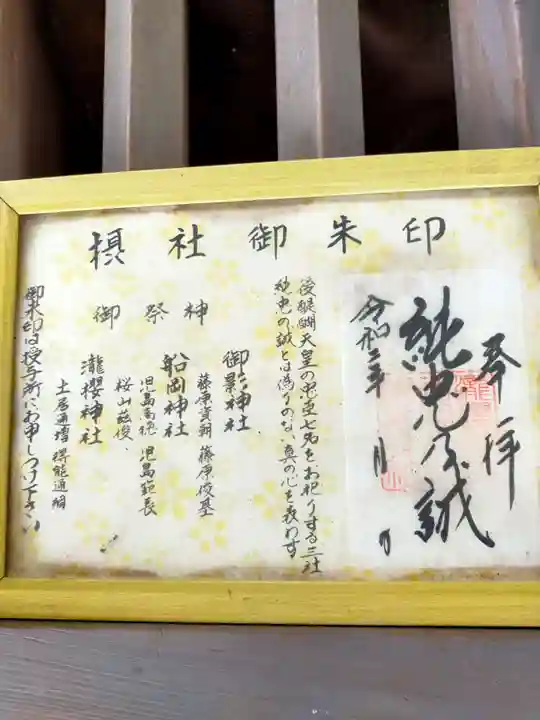 摂社御朱印
奉拝
純忠乃誠
令和二年 月 日
後醍醐天皇の忠臣七名をお祀りする三社
純忠の誠とは偽りのない真の心を表わす
御祭神
御影神社
藤原資朝 藤原俊基
船岡神社
児島高徳 児島範長
桜山茲俊
瀧櫻神社
土居通増 得能通綱
御朱印は授与所にお申しつけ下さい